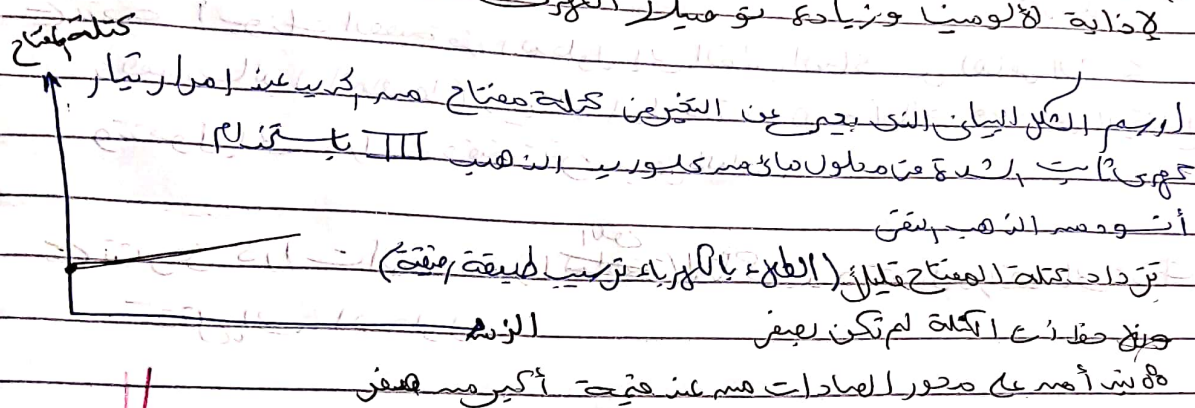 لإذابة الألومينا وزيادة توصيل
كتلة المفتاح
ارسم الشكل البياني الذى يعبر عن التغير فى كتلة مفتاح من الحديد عند امرار تيار
كهربى ثابت الشدة فى محلول مائى من كلوريد الذهب III باستخدام
أنود من الذهب النقى
تزداد كتلة المفتاح قليلاً (الطلاء بالكهرباء ترسيب طبقة رقيقة)
الزمن
ولا حظ ان الكتلة لم تكن بصفر
يبدأ من على محور الصادات من عند قيمة أكبر من صفر